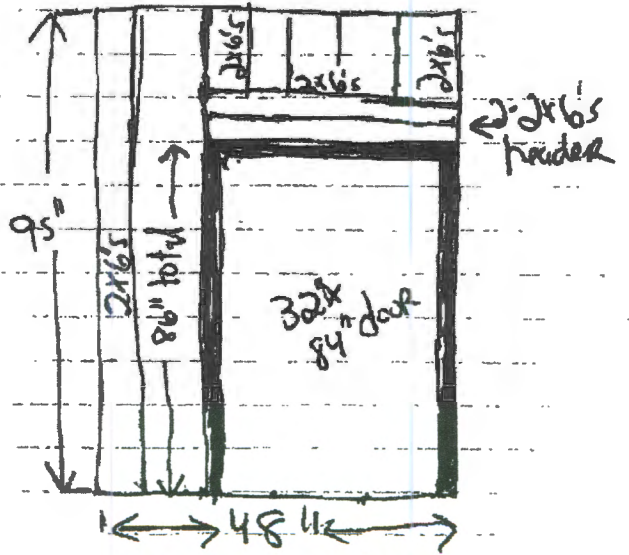 2x6's
2x6's
2x6's
2-2x6's
header
95"
2x6's
86" total
32"x
84" door
48"